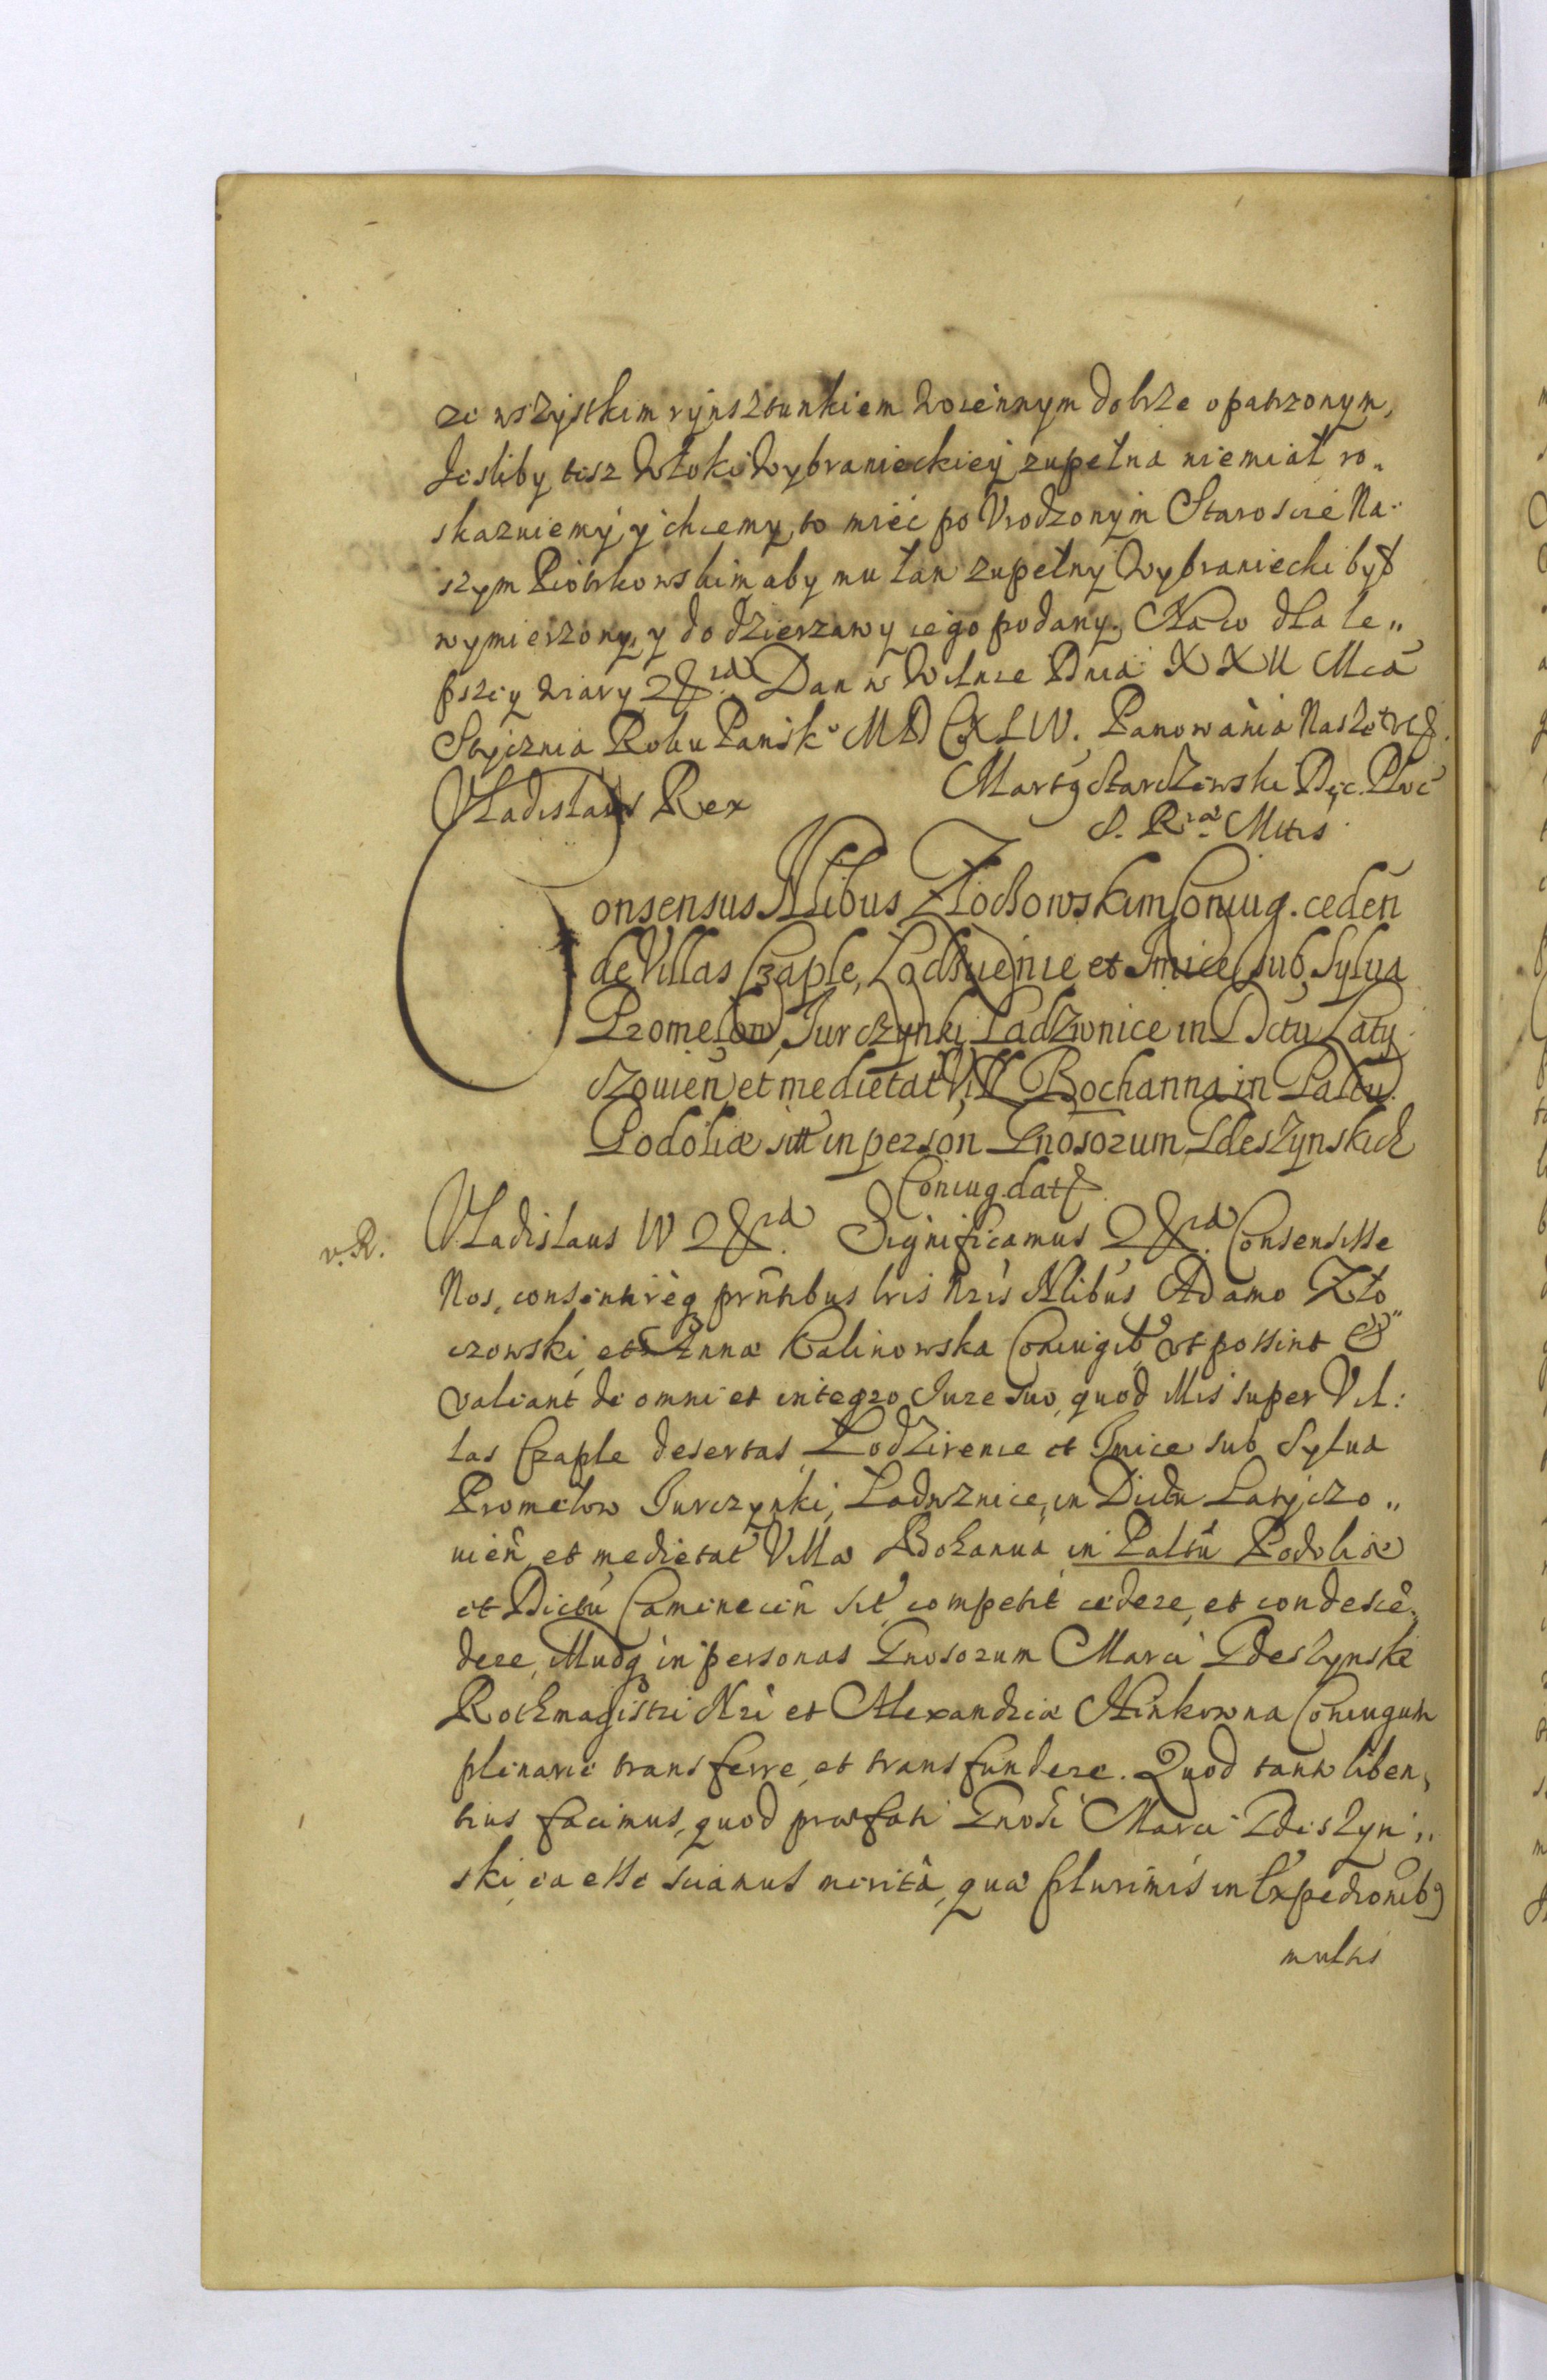 ze wszystkim rynsztunkiem woiennym dobrze opatrzonym,
Jesliby tesz Włoki Wybranieckiey zupełna niemiał ro„
skazuiemy, y chcemy to mieć po Vrodzonym Staroscie Na-
szym Piotrkowskim aby mu łan zupełny Wybraniecki był
wymierzony, y do dzierzawy iego podany. Na co dla le„
pszey wiary &ra. Dan w Wilnie Dnia XXII Mca
Stycznia Roku Pansko MDCXLIV. Panowania Naszo &c.
Vladislaus Rex
S. Rae Mttis
Consensus Nlibus Złoczowskim Coniug. ceden
de Villas Czaple, Lodziienie et Imice sub Sylua
Promelow, Jurczynki Ladziwnice in Dctu Laty
czouien et medietat Vill Bochanna in Paltu
Podoliæ sitt in person Gnosorum Zdeszynskich
Coniug. datt
v. R. Vladislaus IV &ra. Significamus &ra. Consensisse
Nos, consentireq prntibus lris nris Nlibus Adamo Zło„
czowski, et Annæ Kalinowska Coniugib ut possint &
valeant de omni et integro Jure suo, quod illis super Vil:
las Czaple desertas Lodzirenie et Imice sub Sylua
Promelow Jurczynki, Ladwznice, in Dictu Latyczo„
uien, et medietat Villæ Bohanua in Paltu Podoliæ
et Dictu Camenecen sit competit cedere, et condesce„
dere, Illudq in personas Gnosorum Marci Zdeszynski
Rothmagistri Nri et Alexandriæ Hinkowna Coniugum
plenarie transferre, et transfundere. Quod tanto liben„
tius facimus, quod præfati Gnosi Marci Zdeszyn„
ski, ea esse sciamus merita, quæ plurimis in Expedionib9
multis